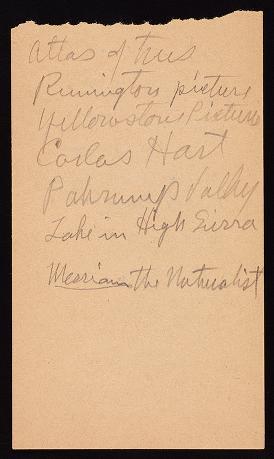 Atlas of trees
Remington picture
Yellowstone Picture
Hart
Pahrump Valley
Lake in High Sierra
Merriam the Naturalist